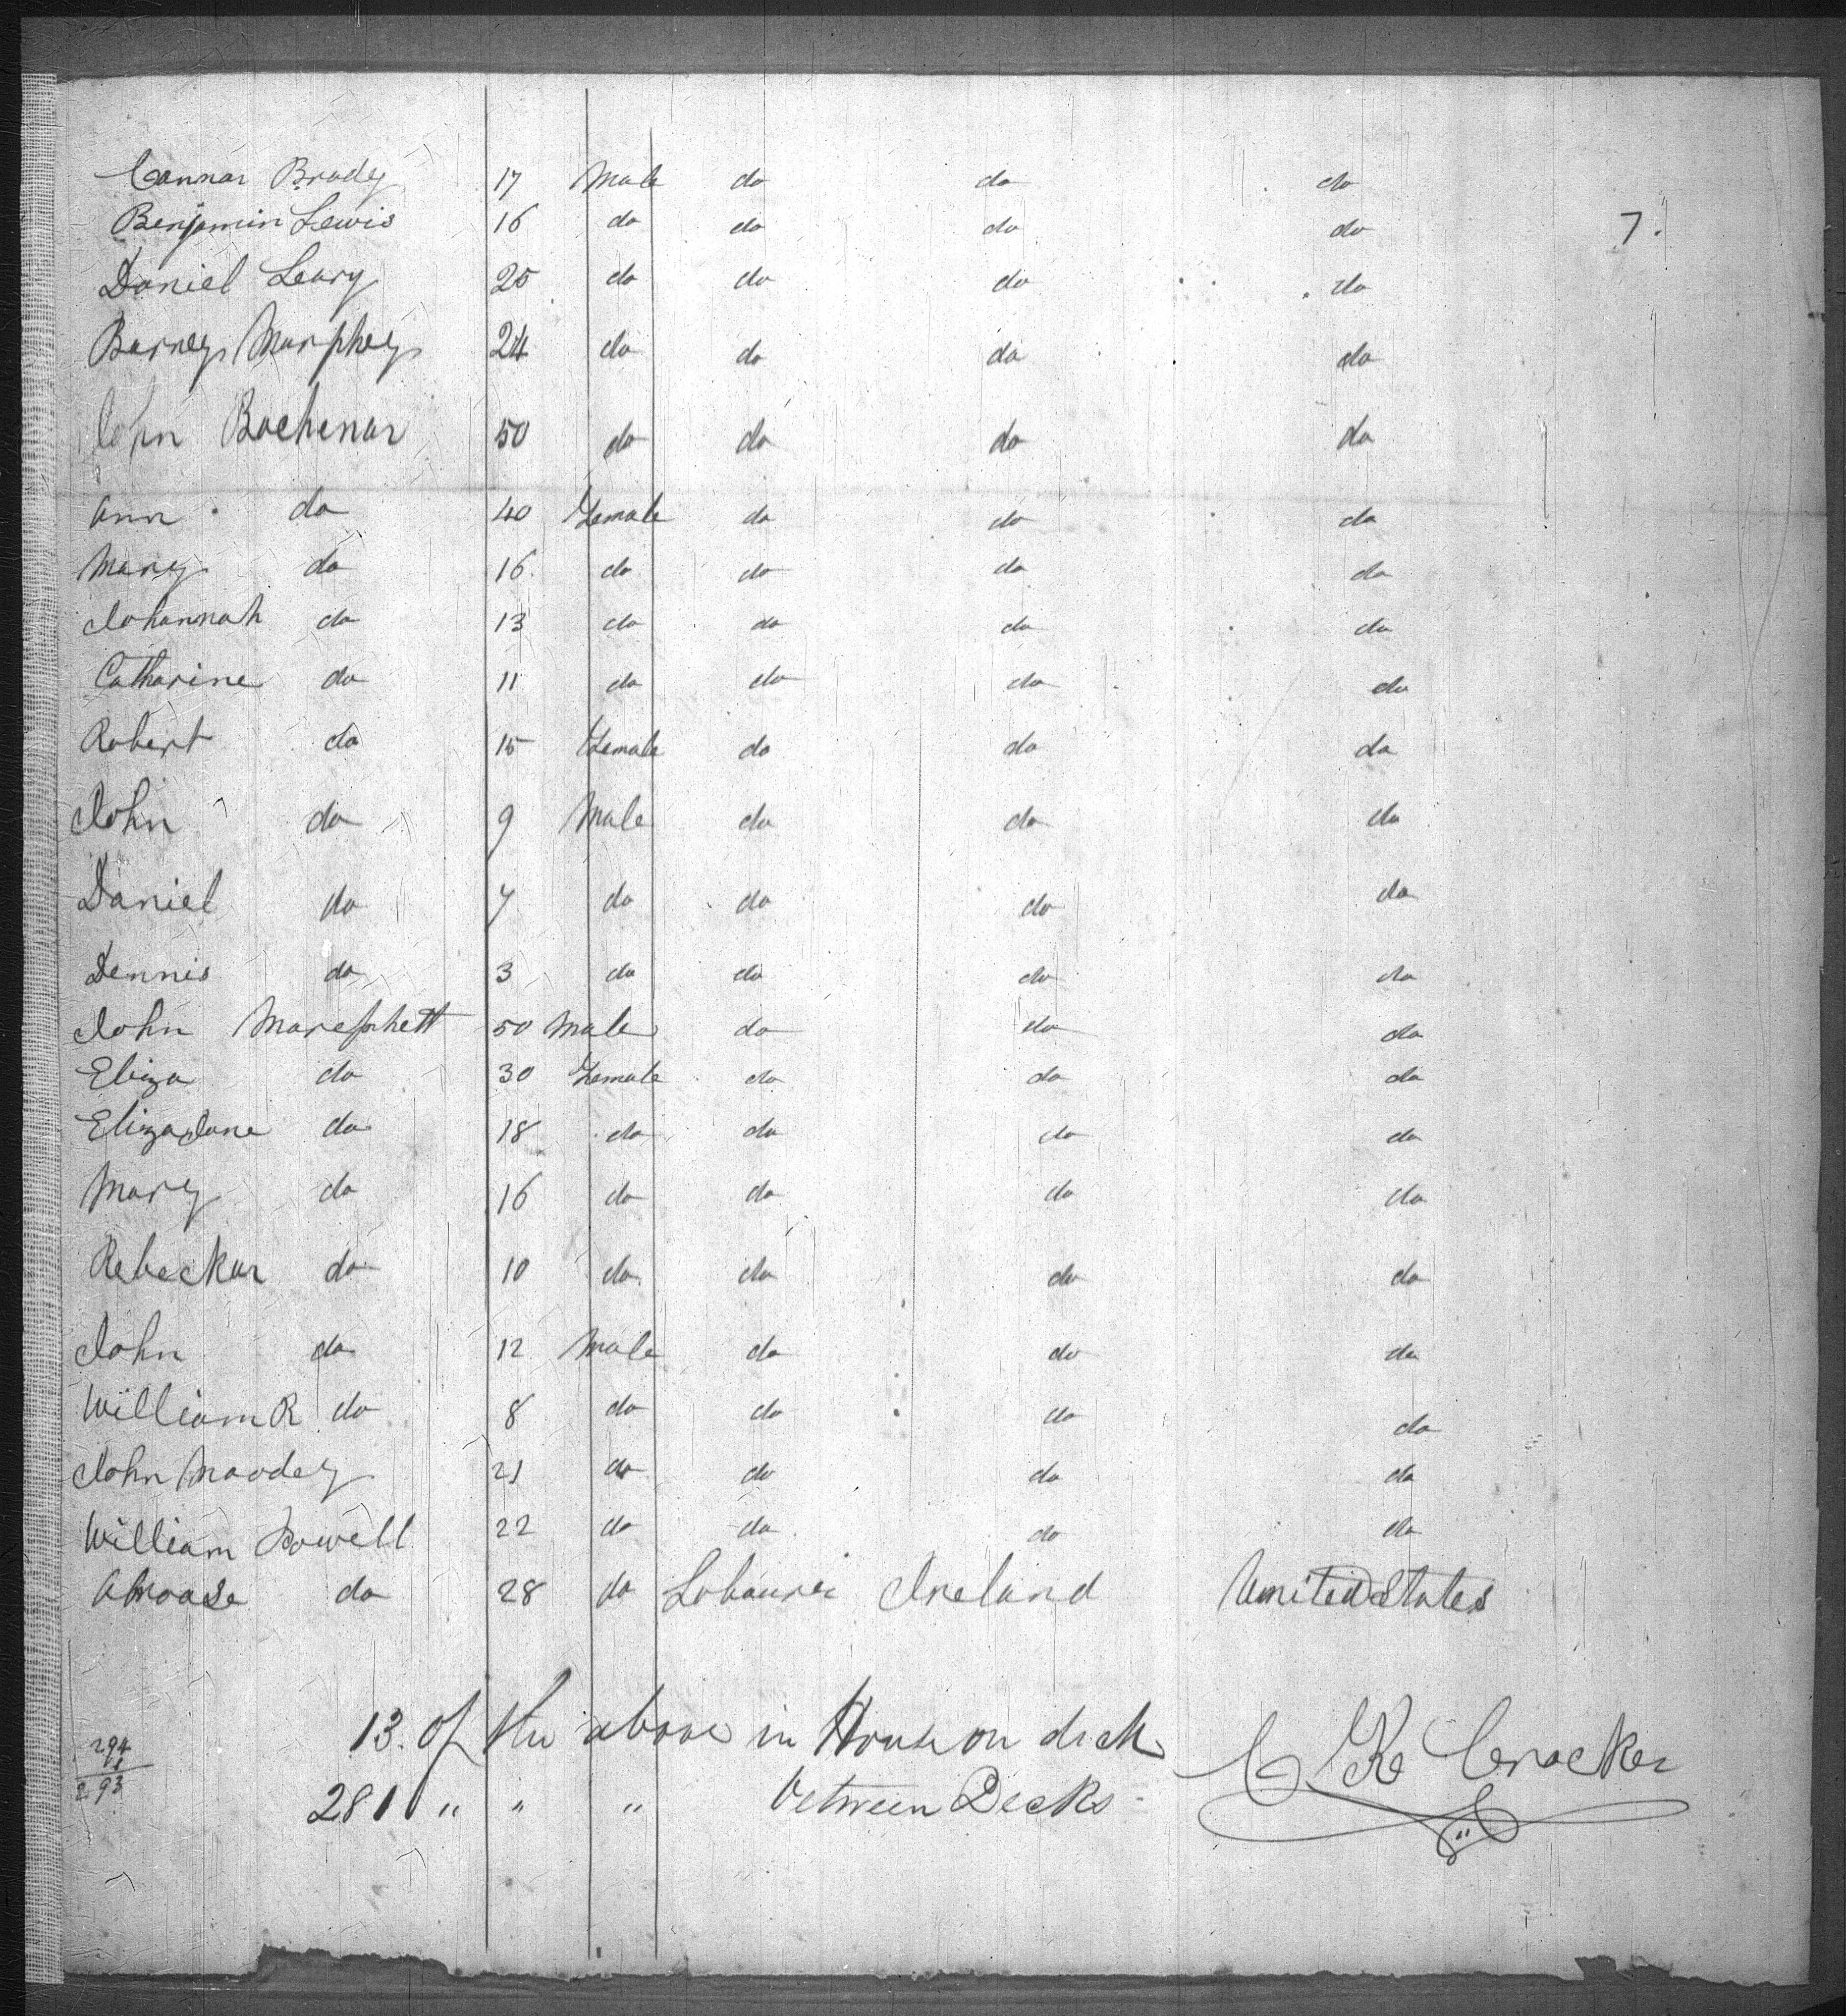 Connar Brady 17 Male do do do
Benjamin Lewis 16 do do do do
7.
Daniel Leary 25 do do do do
Barney Murphey 24 do do do do
John Bochenar 50 do do do do
Ann do 40 Female do do do
Mary do 16 do do do do
Johannah do 13 do do do do
Catharine do 11 do do do do
Robert do 15 Female do do do
John do 9 Male do do do
Daniel do 7 do do do do
Dennis do 3 do do do do
John 50 Male do do do
Eliza do 30 Female do do do
Eliza Jane do 18 do do do do
Mary do 16 do do do do
Rebeckar do 10 do do do do
John do 12 Male do do do
William R do 8 do do do do
John Moodey 21 do do do do
William Powell 22 do do do do
do 28 do Ireland United States
13. of the above in House on deck
281 " " " between Decks
C K Crocker
294
1
293